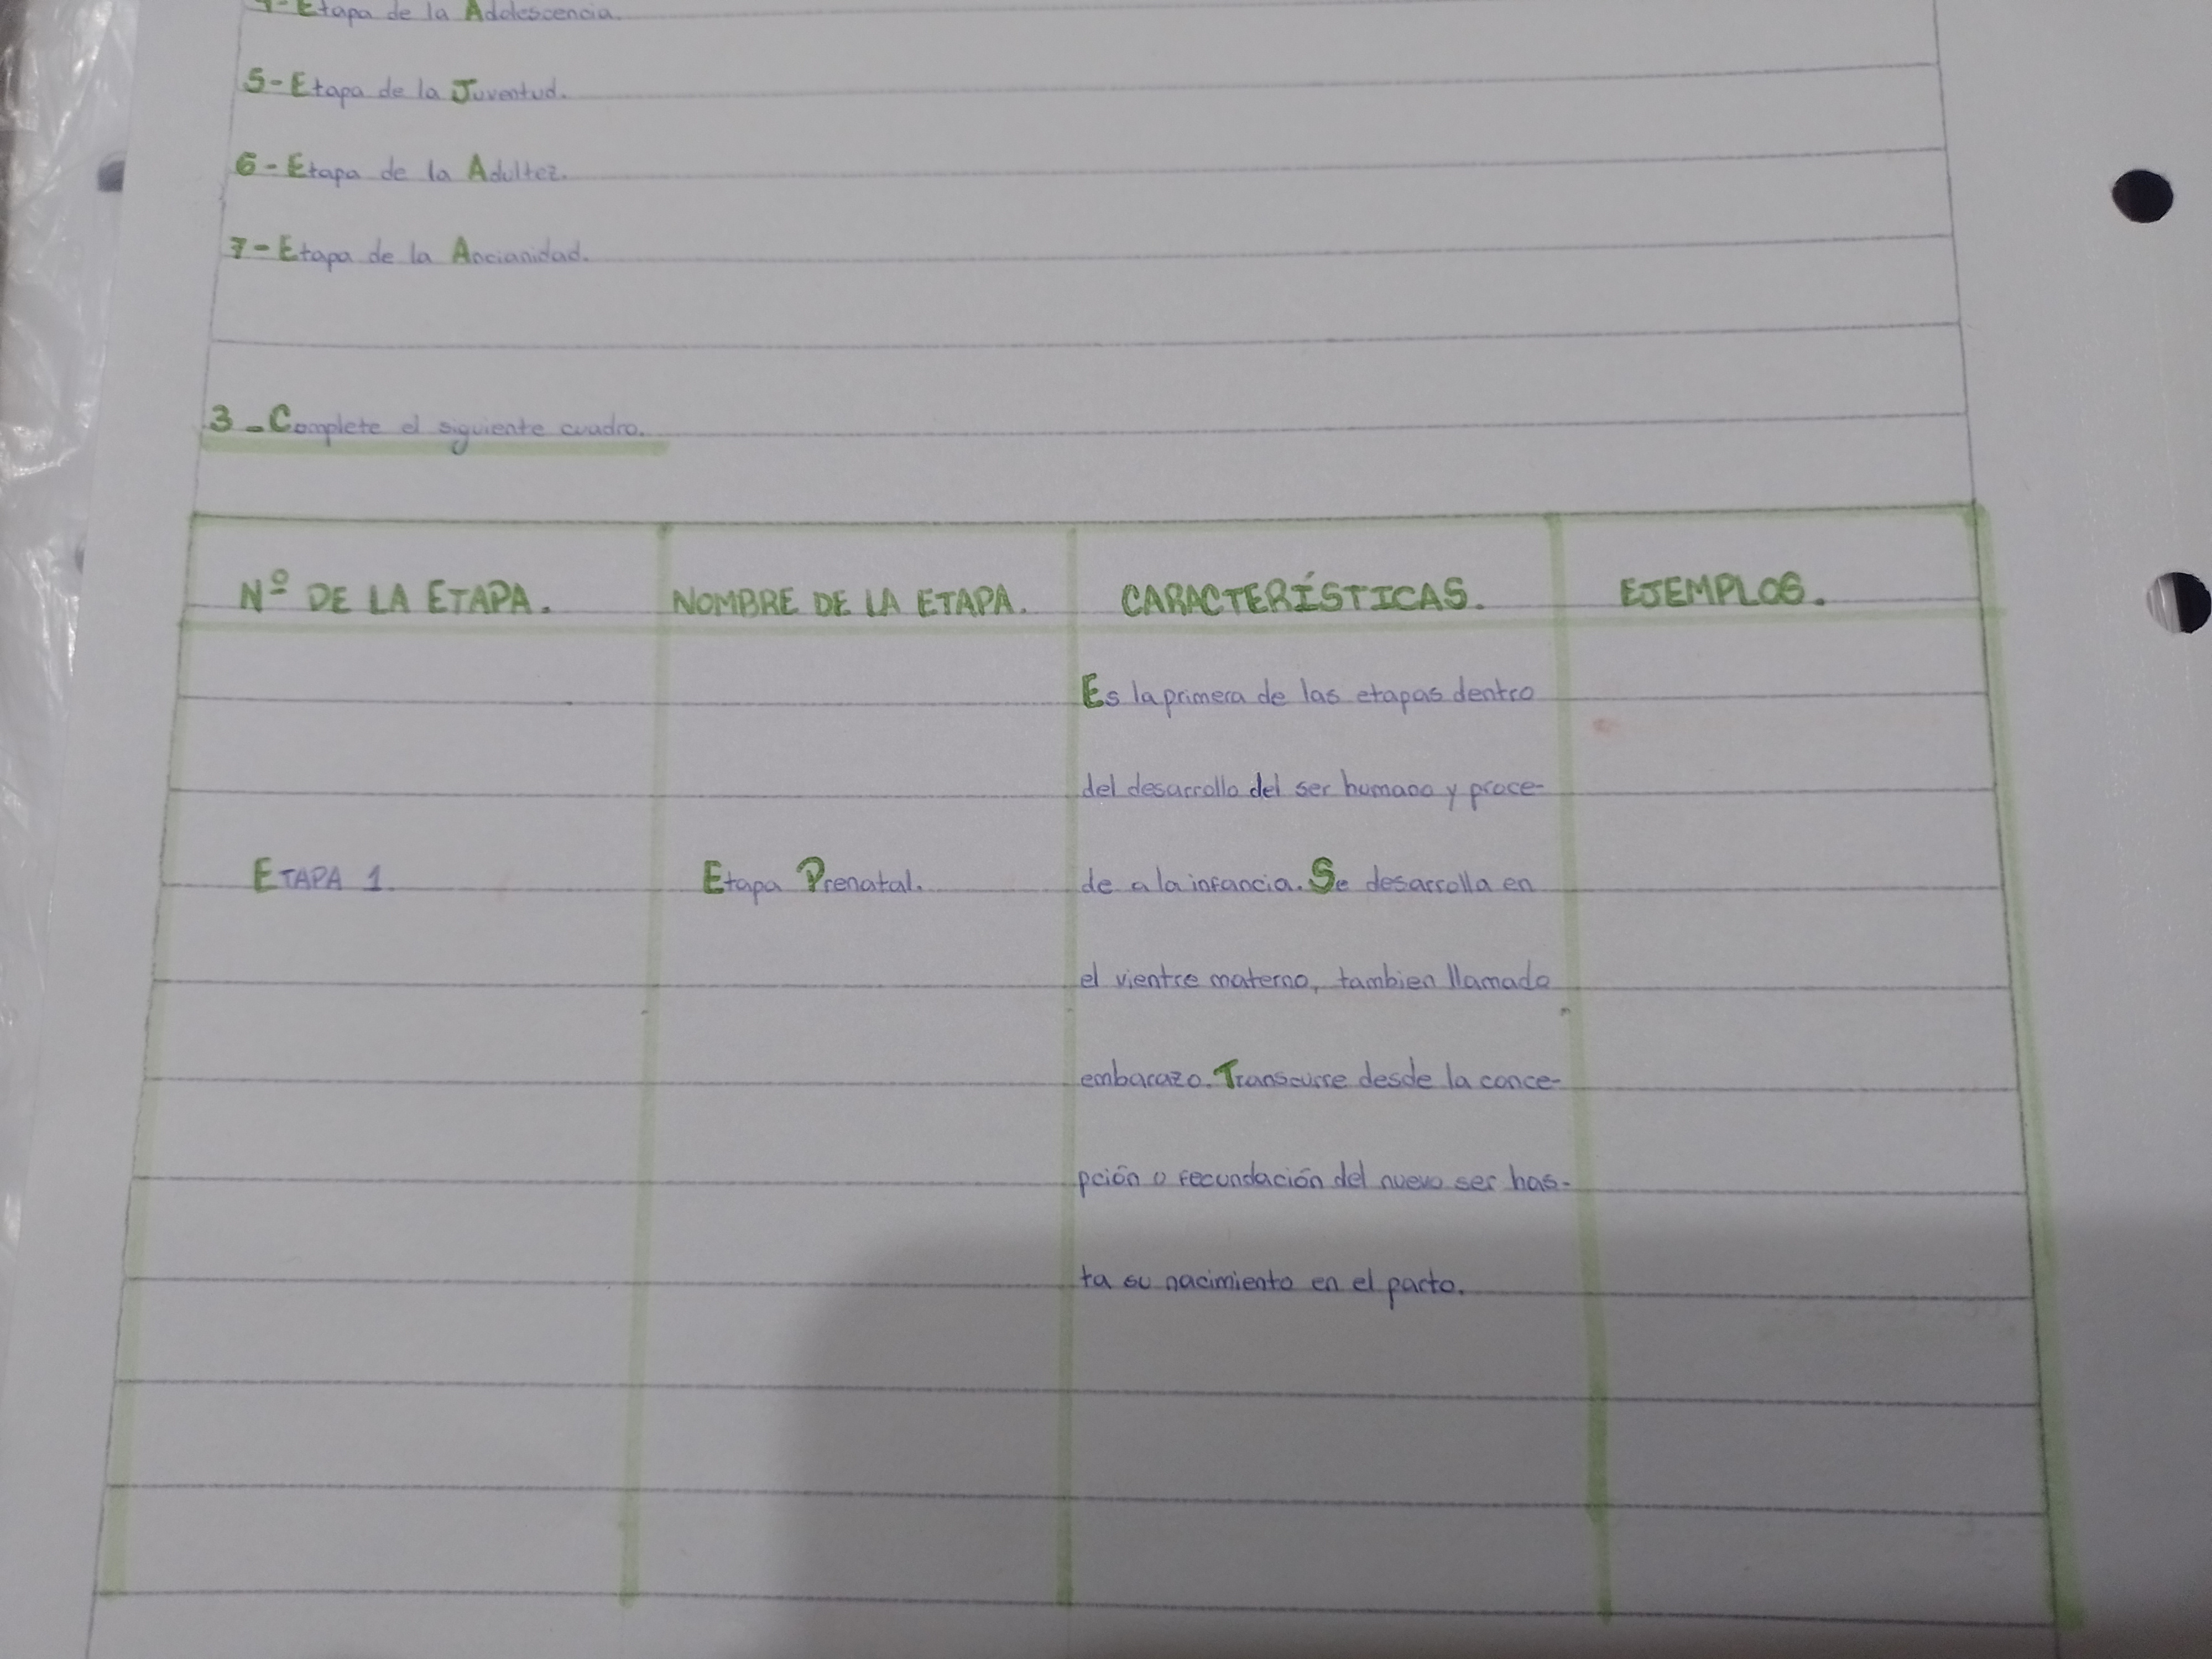 4- Etapa de la Adolescencia.
5- Etapa de la Juventud.
6- Etapa de la Adultez.
7- Etapa de la Ancianidad.
3- Complete el siguiente cuadro.
Nº DE LA ETAPA. NOMBRE DE LA ETAPA. CARACTERÍSTICAS. EJEMPLOS.
ETAPA 1.
Etapa Prenatal.
Es la primera de las etapas dentro
del desarrollo del ser humano y proce-
de a la infancia. Se desarrolla en
el vientre materno, tambien llamado
embarazo. Transcurre desde la conce-
pción o fecundación del nuevo ser has-
ta su nacimiento en el parto.